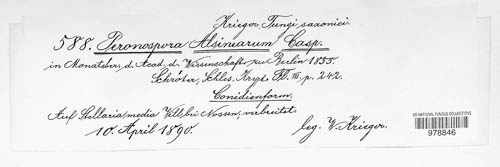 Krieger, Fungi saxonici.
588. Peronospora Alsinearum Casp.
in Monatsber. d. Acad. d. Wissenschaft. zu Berlin 1855.
Schröter, Schles. Krypt. Fl. III, p. 242.
Conidienform.
Auf Stellaria media Vill. bei Nossen, verbreitet
10. April 1890. leg. W. Krieger.
US NATIONAL FUNGUS COLLECTIONS
978846